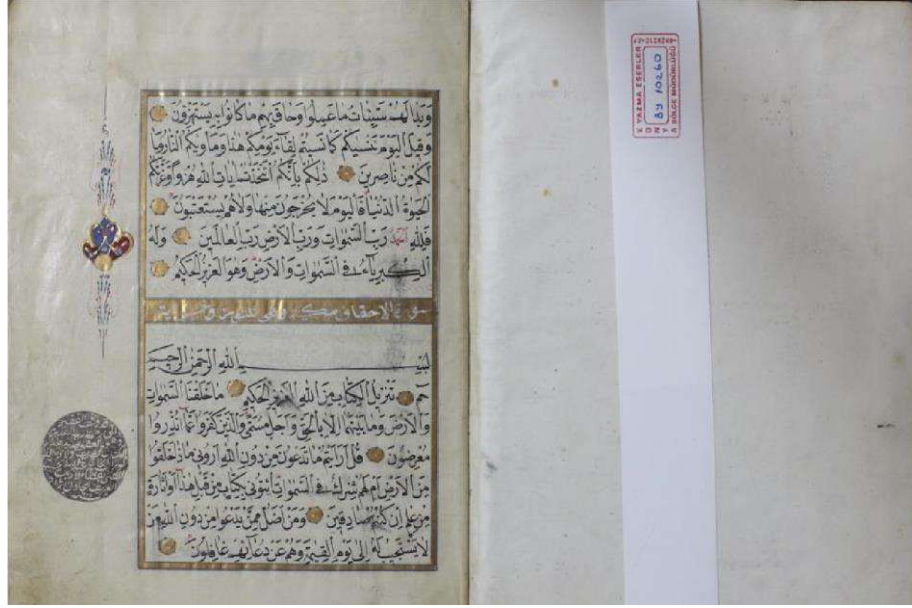 وَبَدَا لَهُمْ سَيِّئَاتُ مَا عَمِلُوا وَحَاقَ بِهِمْ مَا كَانُوا بِهِ يَسْتَهْزِؤُنَ
وَقِيلَ الْيَوْمَ نَنْسٰيكُمْ كَمَا نَسِيتُمْ لِقَاءَ يَوْمِكُمْ هٰذَا وَمَأْوٰيكُمُ النَّارُ وَمَا
لَكُمْ مِنْ نَاصِرِينَ ذٰلِكُمْ بِأَنَّكُمُ اتَّخَذْتُمْ اٰيَاتِ اللّٰهِ هُزُوًا وَغَرَّتْكُمُ
الْحَيٰوةُ الدُّنْيَا فَالْيَوْمَ لَا يُخْرَجُونَ مِنْهَا وَلَا هُمْ يُسْتَعْتَبُونَ
فَلِلّٰهِ الْحَمْدُ رَبِّ السَّمٰوَاتِ وَرَبِّ الْأَرْضِ رَبِّ الْعَالَمِينَ وَلَهُ
الْكِبْرِيَاءُ فِي السَّمٰوَاتِ وَالْأَرْضِ وَهُوَ الْعَزِيزُ الْحَكِيمُ
سورة الاحقاف مكية وهي
بِسْمِ اللّٰهِ الرَّحْمٰنِ الرَّحِيمِ
حٰمٓ تَنْزِيلُ الْكِتَابِ مِنَ اللّٰهِ الْعَزِيزِ الْحَكِيمِ مَا خَلَقْنَا السَّمٰوَاتِ
وَالْأَرْضَ وَمَا بَيْنَهُمَا إِلَّا بِالْحَقِّ وَأَجَلٍ مُسَمًّى وَالَّذِينَ كَفَرُوا عَمَّا أُنْذِرُوا
مُعْرِضُونَ قُلْ أَرَأَيْتُمْ مَا تَدْعُونَ مِنْ دُونِ اللّٰهِ أَرُونِي مَاذَا خَلَقُوا
مِنَ الْأَرْضِ أَمْ لَهُمْ شِرْكٌ فِي السَّمٰوَاتِ ائْتُونِي بِكِتَابٍ مِنْ قَبْلِ هٰذَا أَوْ أَثَارَةٍ
مِنْ عِلْمٍ إِنْ كُنْتُمْ صَادِقِينَ وَمَنْ أَضَلُّ مِمَّنْ يَدْعُوا مِنْ دُونِ اللّٰهِ مَنْ
لَا يَسْتَجِيبُ لَهُ إِلٰى يَوْمِ الْقِيٰمَةِ وَهُمْ عَنْ دُعَائِهِمْ غَافِلُونَ
K YAZMA ESERLER
O
N BY 10260
Y
A BÖLGE MÜDÜRLÜĞÜ